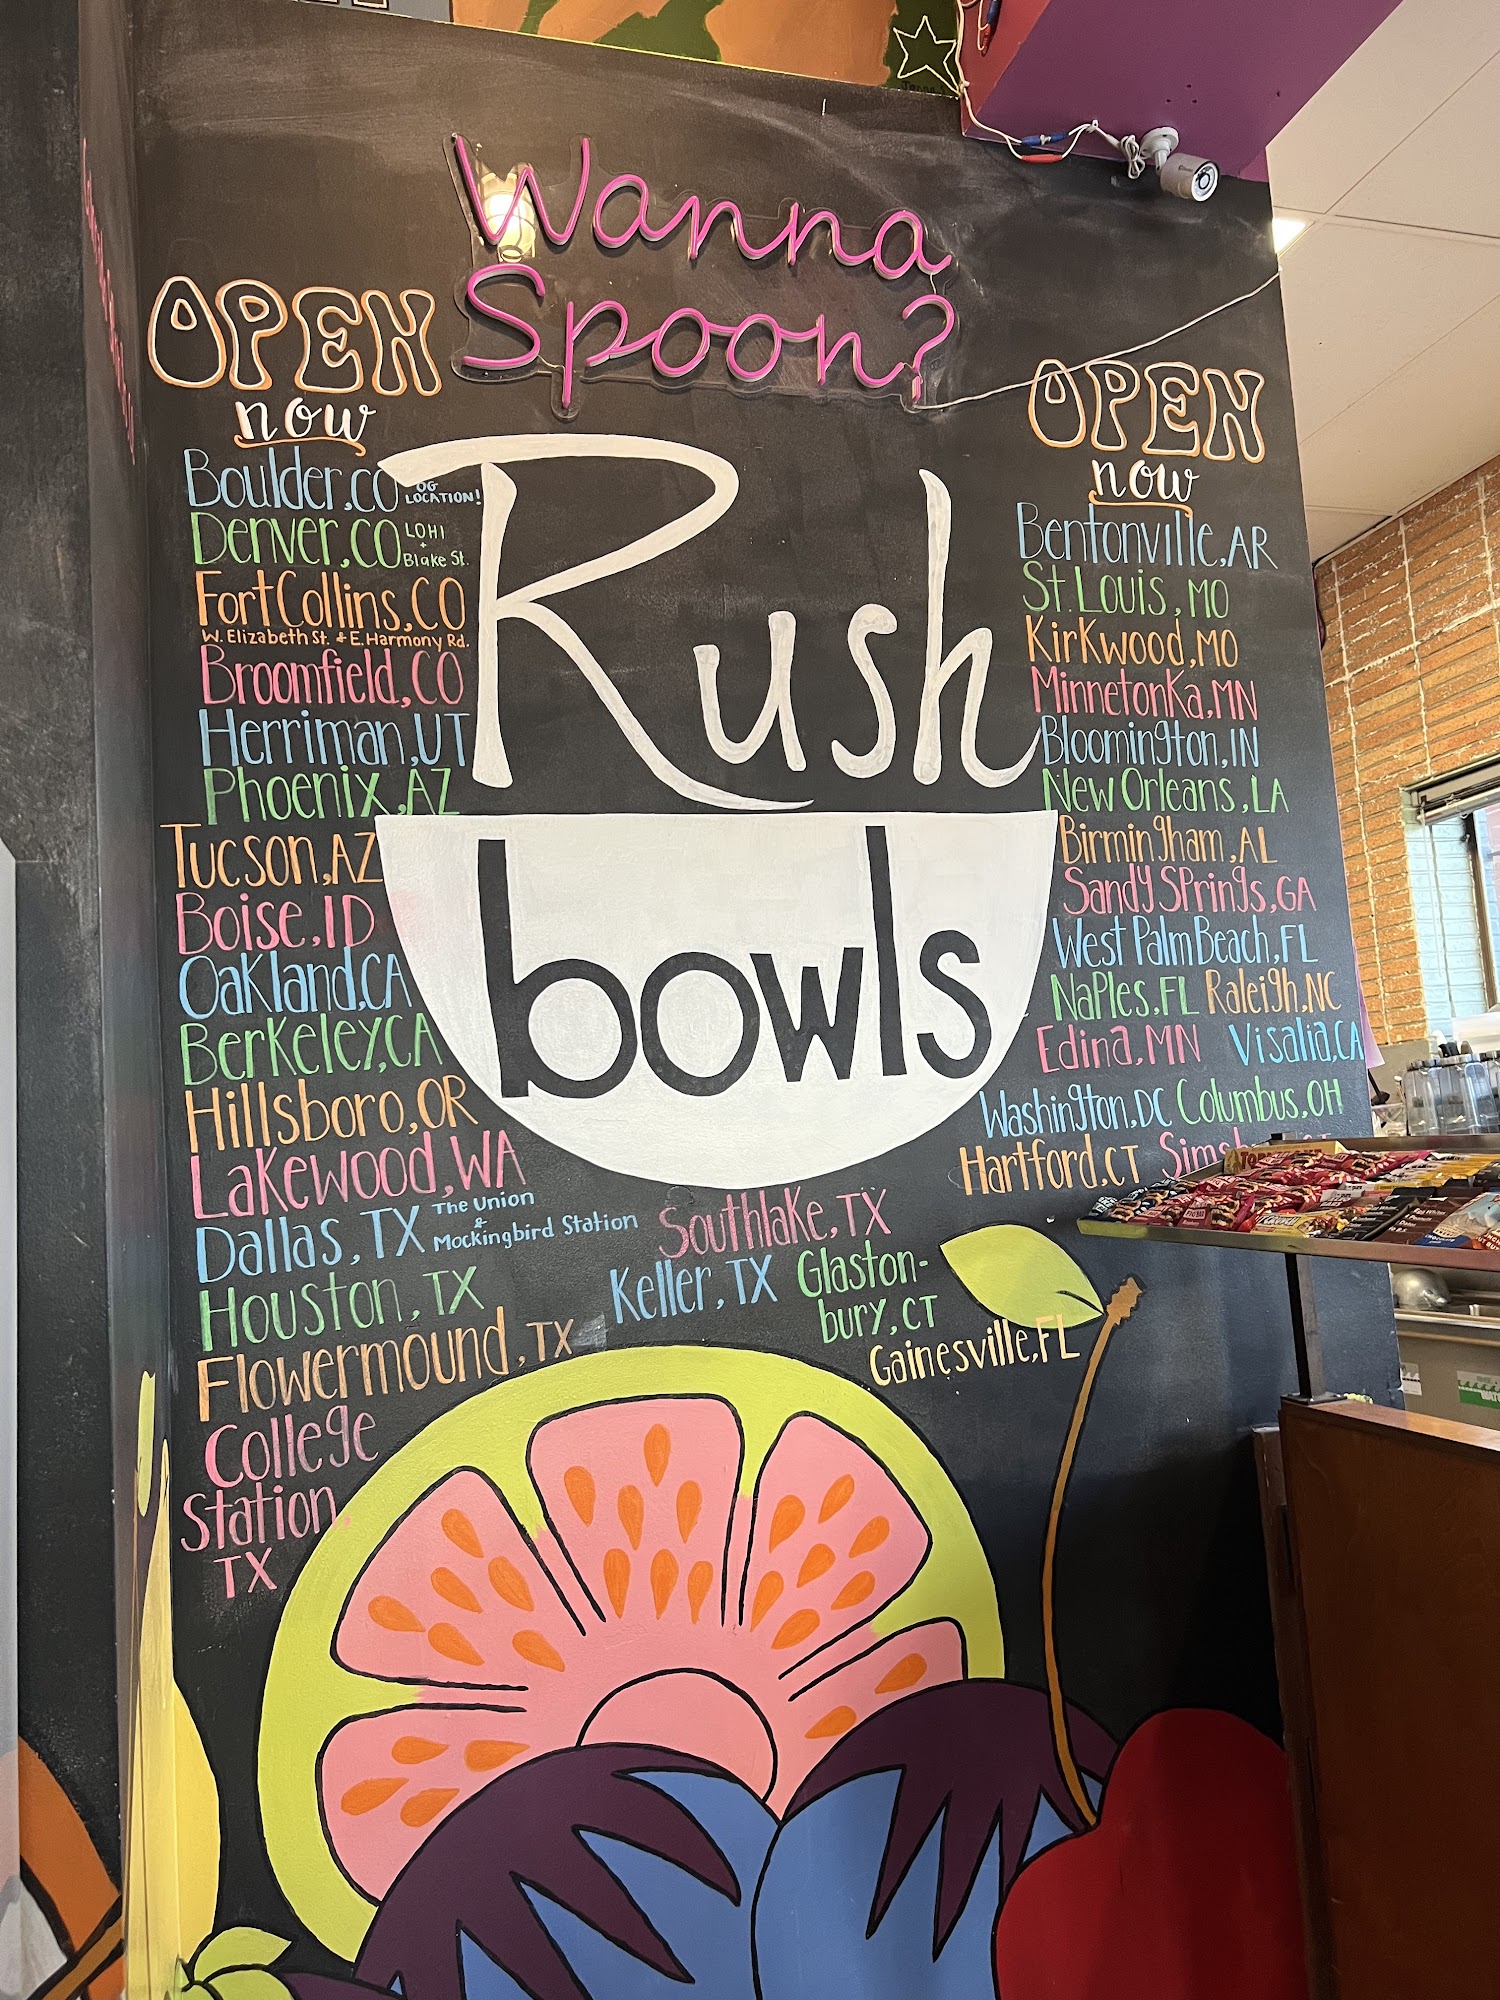 Wanna
Spoon?
OPEN
now
Boulder, CO OG LOCATION!
Denver, CO LOHI + Blake St.
Fort Collins, CO
W. Elizabeth St. & E. Harmony Rd.
Broomfield, CO
Herriman, UT
Phoenix, AZ
Tucson, AZ
Boise, ID
Oakland, CA
Berkeley, CA
Hillsboro, OR
Lakewood, WA
Dallas, TX The Union & Mockingbird Station
Houston, TX
Flowermound, TX
College
Station,
TX
Rush
bowls
Southlake, TX
Keller, TX
Glaston-
bury, CT
Gainesville, FL
OPEN
now
Bentonville, AR
St. Louis, MO
Kirkwood, MO
Minnetonka, MN
Bloomington, IN
New Orleans, LA
Birmingham, AL
Sandy Springs, GA
West Palm Beach, FL
Naples, FL Raleigh, NC
Edina, MN Visalia, CA
Washington, DC Columbus, OH
Hartford, CT